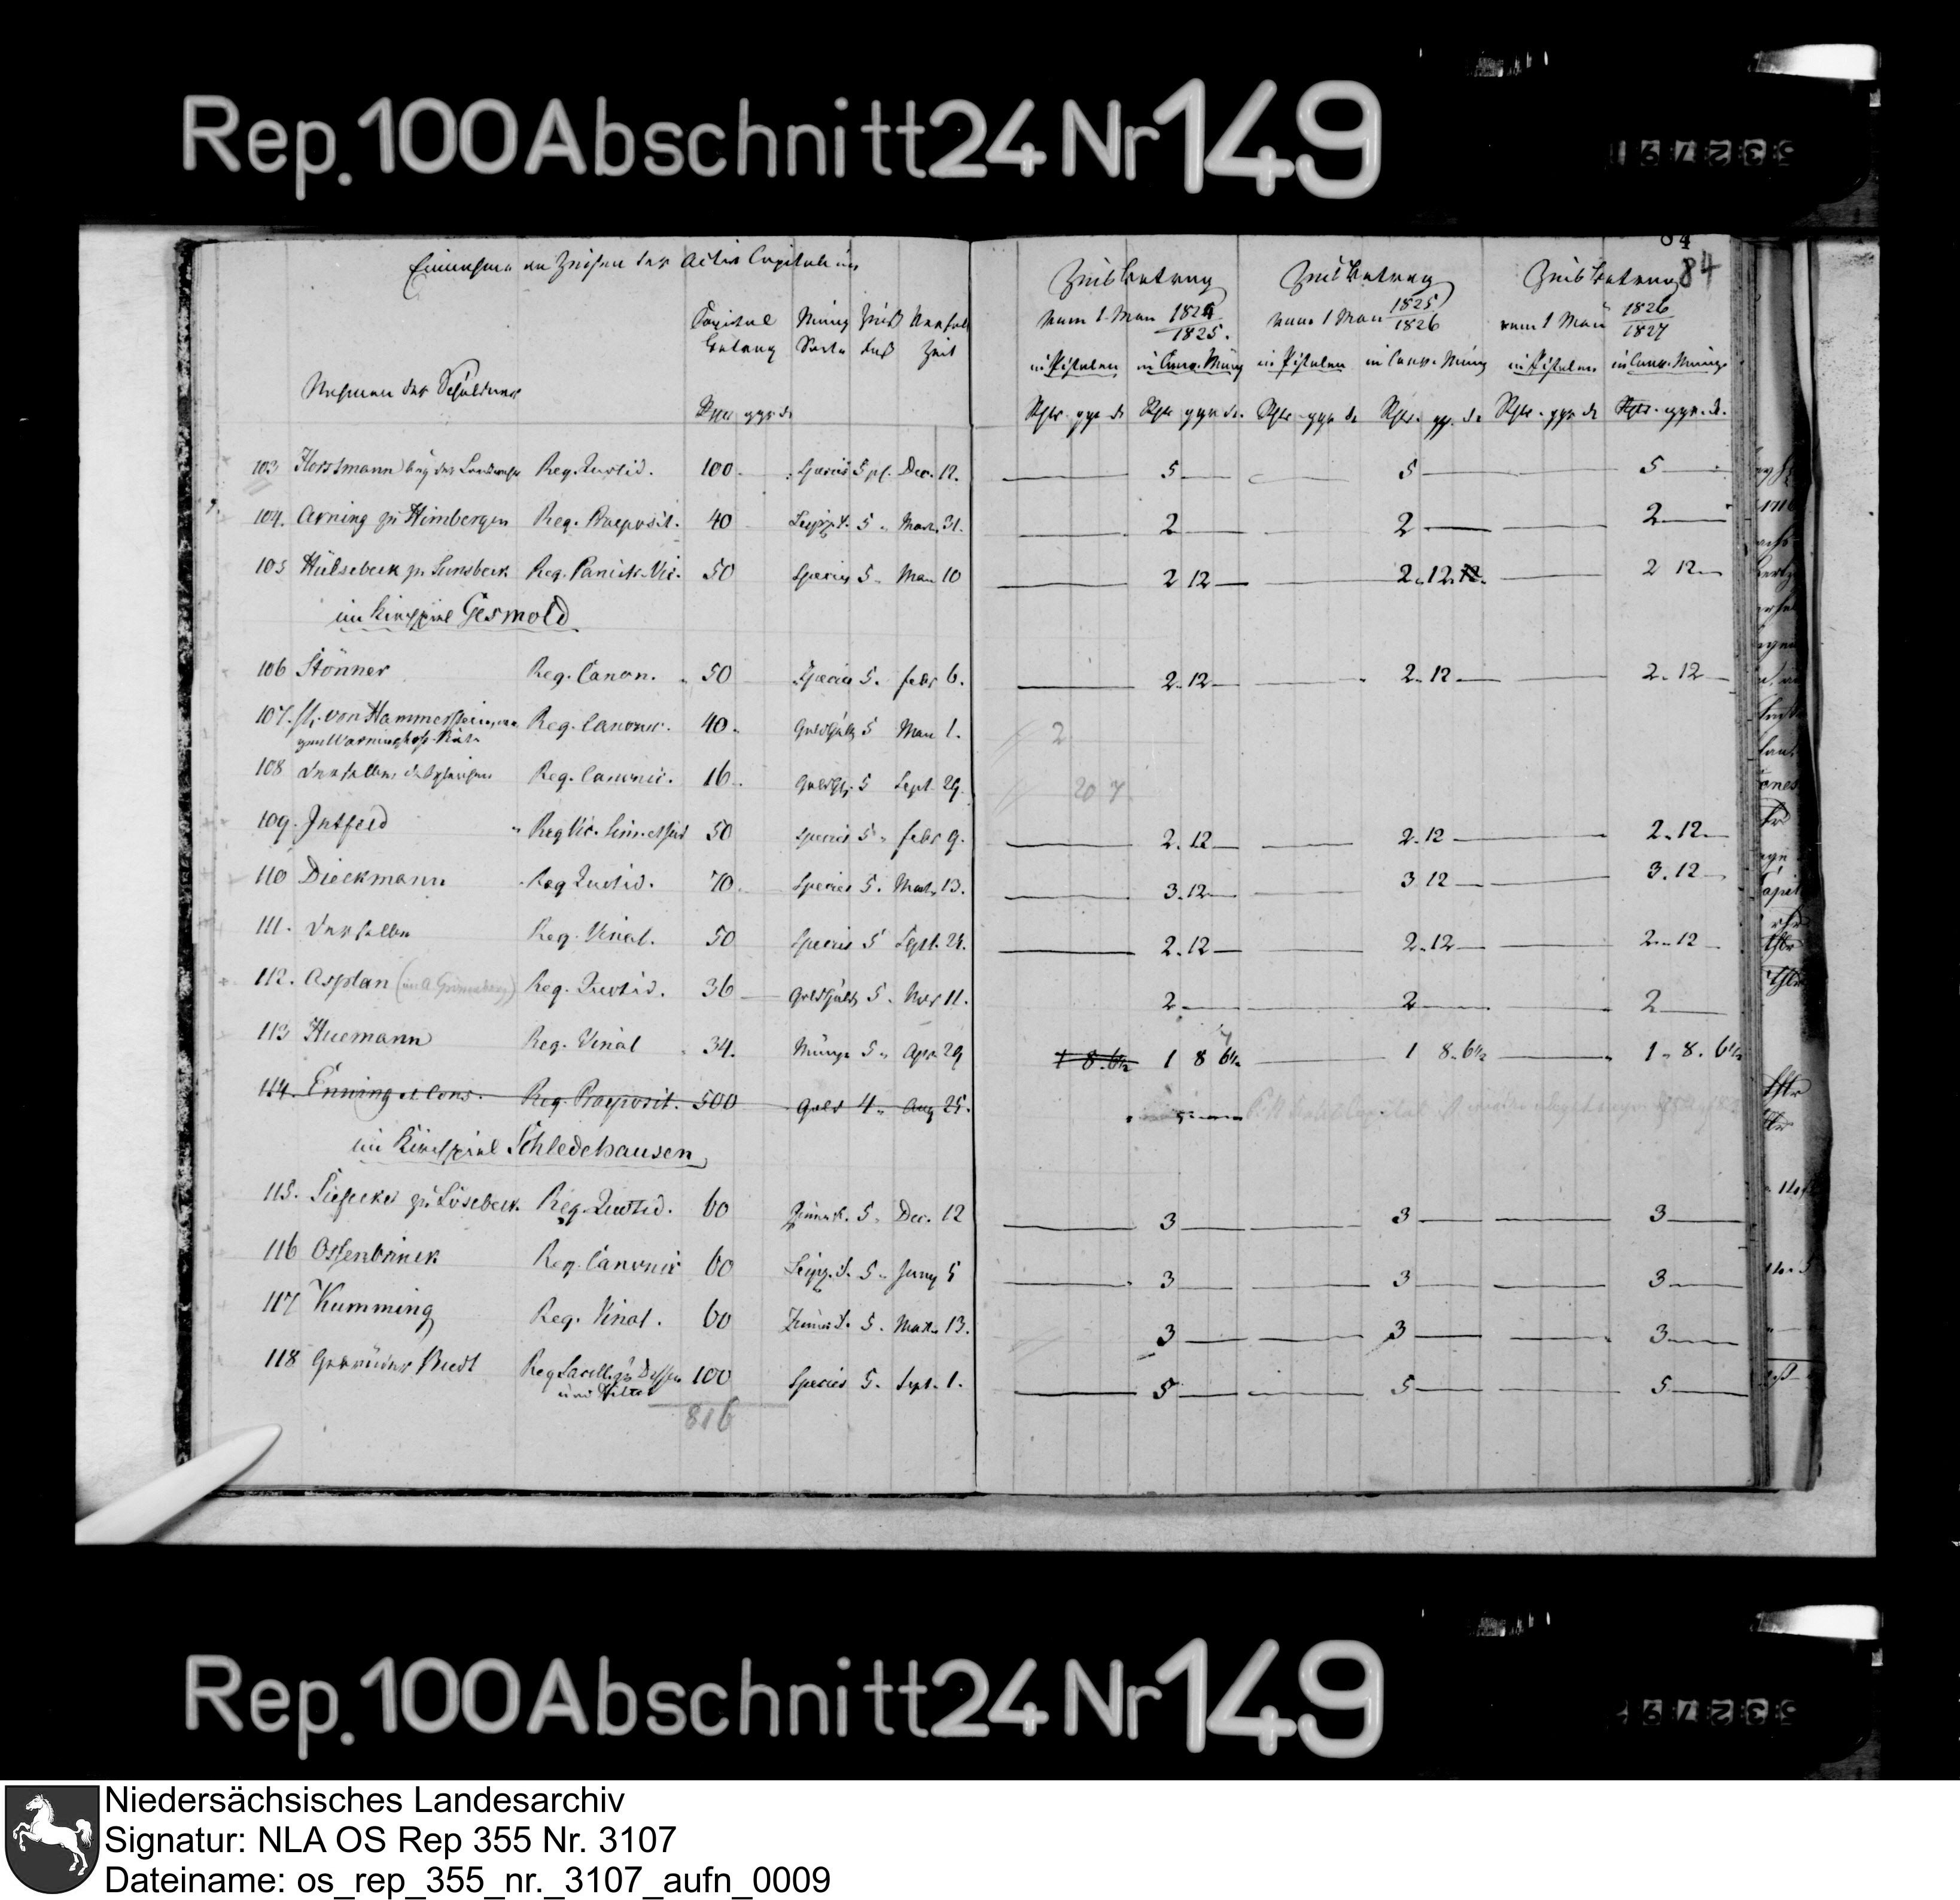 Rep. 100 Abschnitt 24 Nr 149
84
84
Einnahme an Zinsen der Activ Capitalien
Zinsbetrag Zinsbetrag Zinsbetrag
vom 1 May 1824/1825. vom 1 May 1825/1826 vom 1 May 1826/1827
Nahmen der Schuldner
Capital Betrag
Münz Sorte
Zins Fuß
Verfall Zeit
in Pistolen in Conv. Münz in Pistolen in Conv. Münz in Pistolen in Conv. Münz
Rthlr ggr d. Rthlr ggr d. Rthlr ggr d. Rthlr ggr d. Rthlr ggr d. Rthlr ggr d. Rthlr ggr d.
103 Horstmann bey der Reg. Quotid. 100 Species 5 pC. Dec. 12. 5 5 5
104. Arning zu Himbergen Reg. Praeposit. 40 5 Mart. 31. 2 2 2
105 Hülsebeck zu Reg. 50 Species 5 May 10 2 12 2. 12. 2 12
im Kirchspiel Gesmold
106 Stönner Reg. Canon. 50 Species 5. Febr 6. 2. 12 2. 12 2. 12
107. von Hammerstein Reg. Canonic. 40. Goldgüld 5 May 1. 2
108 derselbe Reg. Canonic. 16. Goldg. 5 Sept. 29. 20 7
109. Intfeld Reg Vic. 50 Species 5 Febr 9. 2. 12 2. 12 2. 12
110 Dieckmann Reg Quotid. 70. Species 5. Mart. 13. 3. 12 3 12 3. 12
111. derselbe Reg. Vinal. 50 Species 5 Sept. 2. 12 2. 12 2. 12
112. Asplan (im A. Grönenberg) Reg. Quotid. 36 Goldgüld 5. Nov 11. 2 2 2
113 Huemann Reg. Vinal 34. Münze 5 Apr. 29 1 8 6½ 1 8 6½ 1 8. 6½ 1. 8. 6½
114. Enning et Cons. Reg. Praeposit. 500 Gold 4. Aug 25.
im Kirchspiel Schledehausen
115. zu Lösebeck Reg. Quotid. 60 5. Dec. 12 3 3 3
116 Ossenbrinck Reg. Canonic 60 5. Juny 5 3 3 3
117 Kumming Reg. Vinal. 60 5. Mart. 13. 3 3 3
118 Gebrüder Budt Reg Sacell. zu Dissen und Hilter 100 Species 5. Sept. 1. 5 5 5
816
Rep. 100 Abschnitt 24 Nr 149
Niedersächsisches Landesarchiv
Signatur: NLA OS Rep 355 Nr. 3107
Dateiname: os_rep_355_nr._3107_aufn_0009